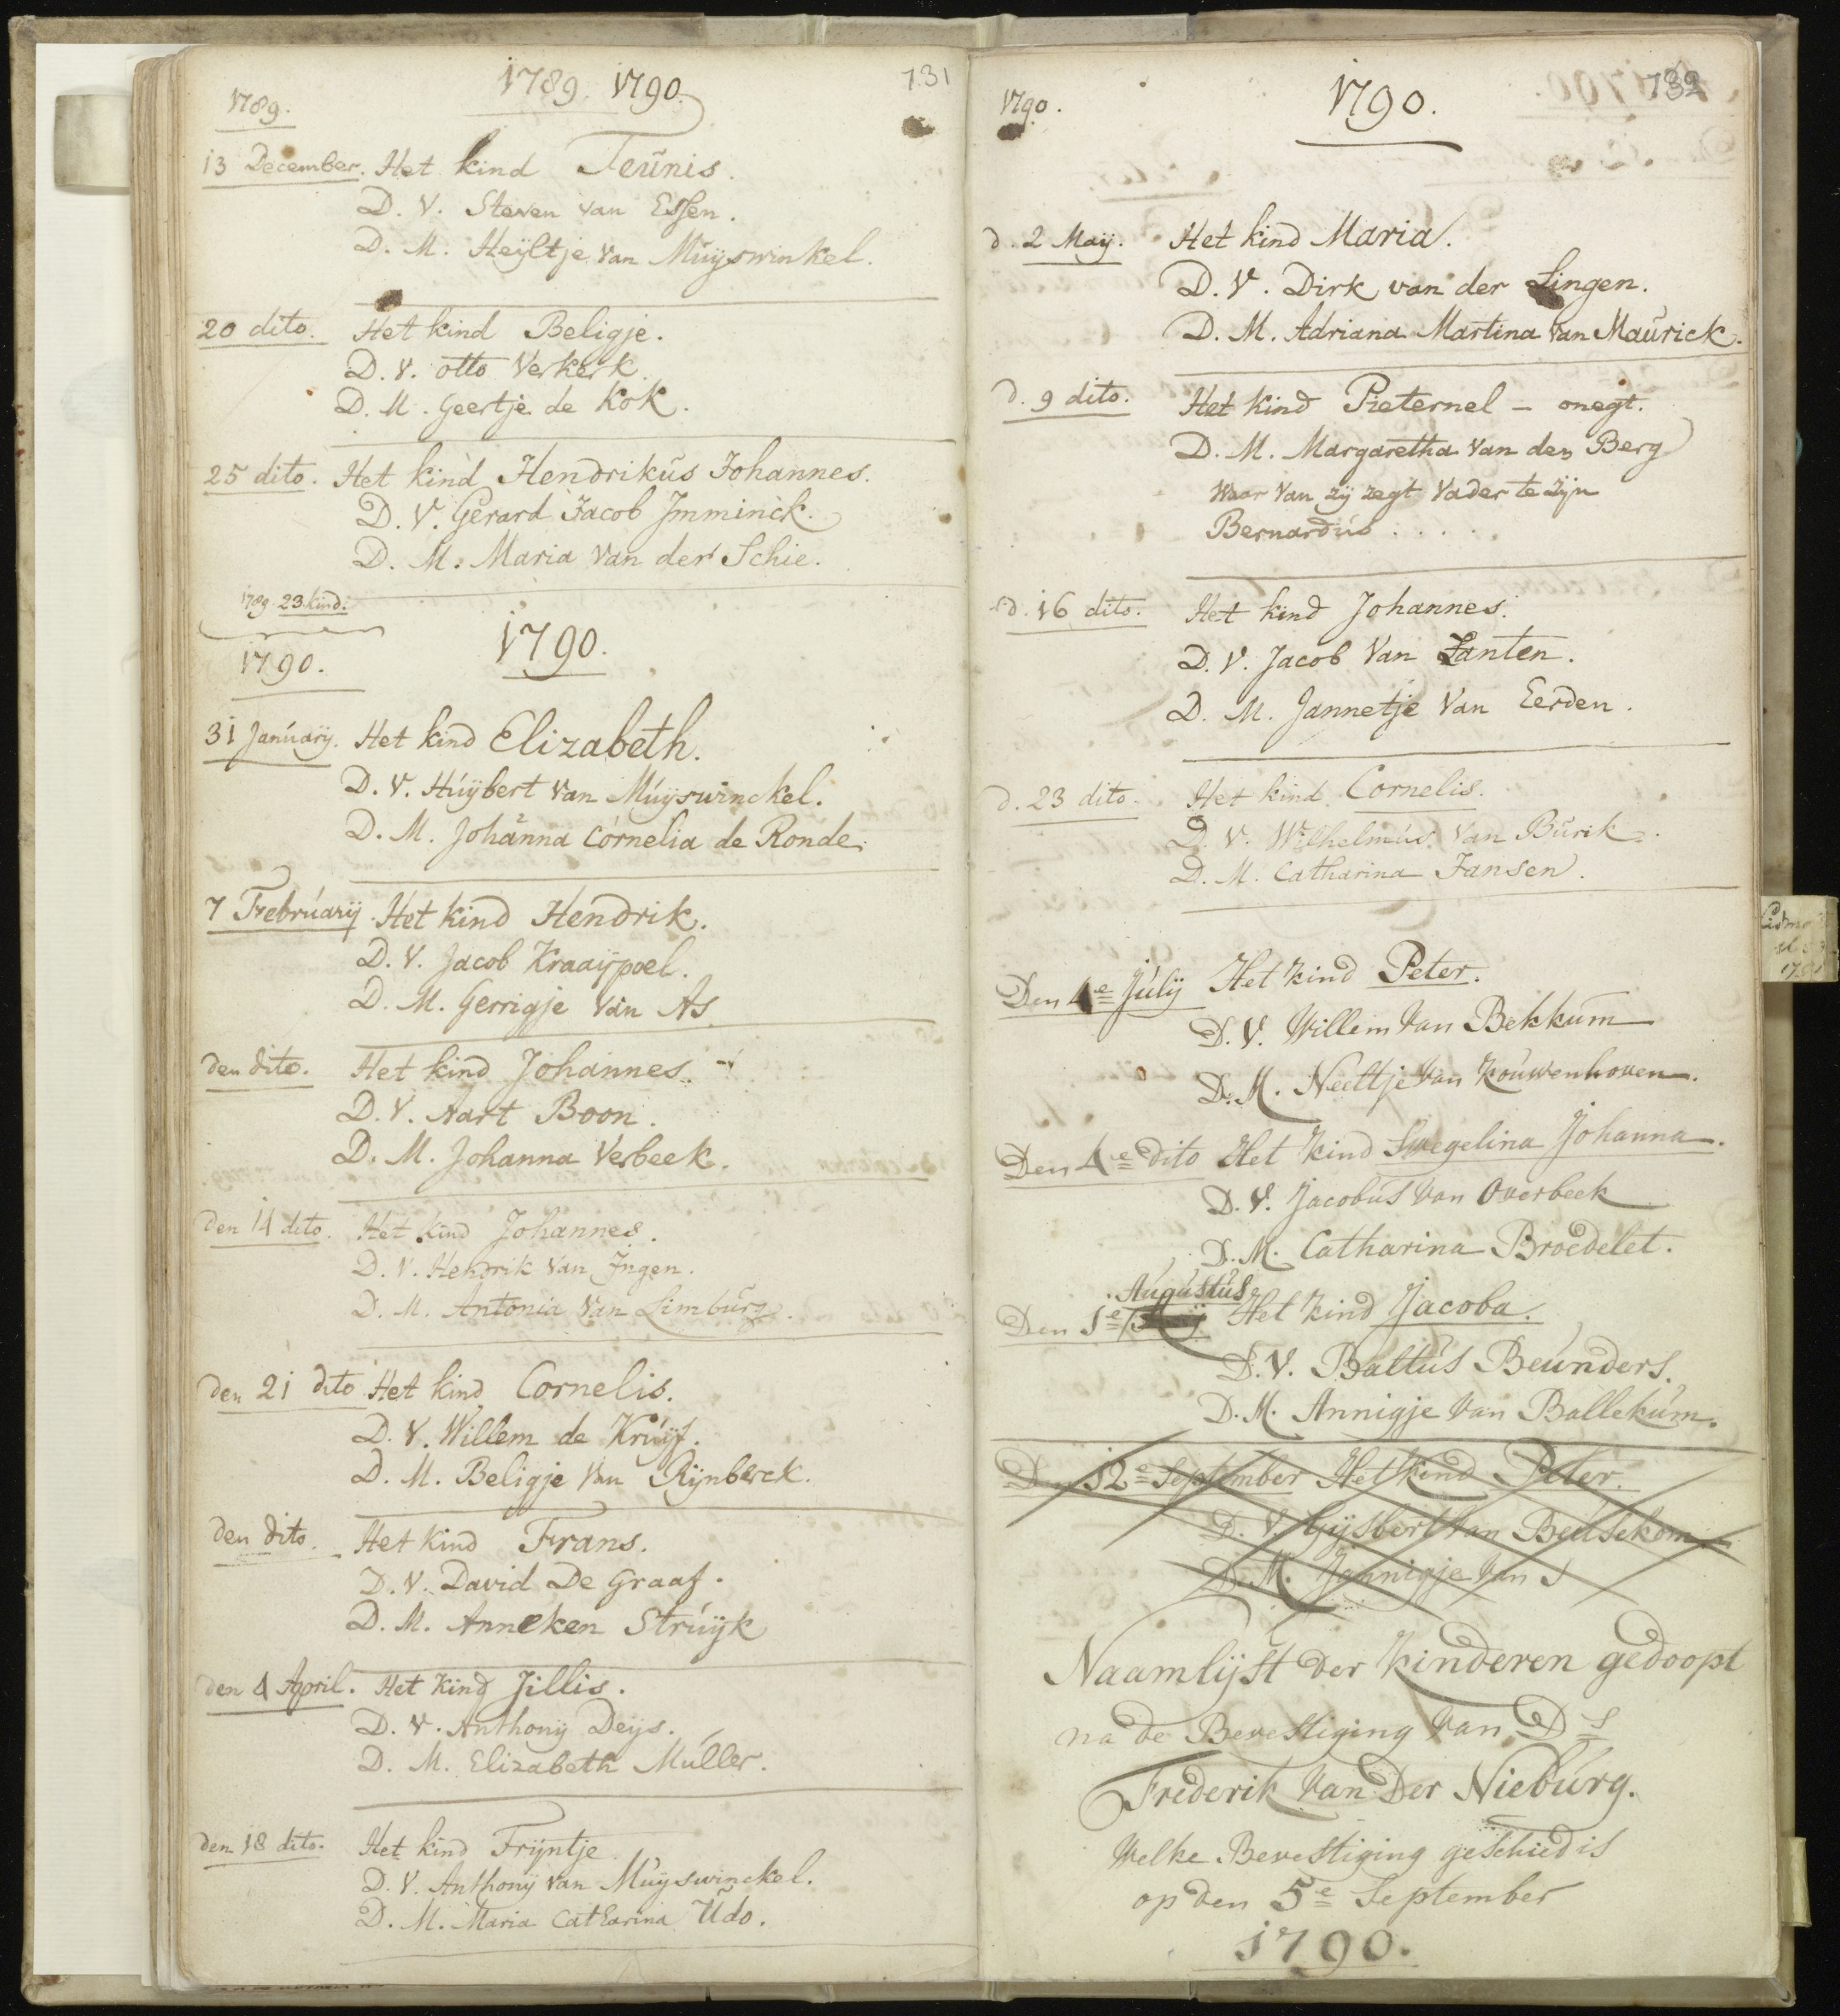 1789. 1790. 731
1789.
13 December. Het kind Teunis.
D. V. Steven van Essen.
D. M. Heÿltje van Muÿswinkel.
20 dito. Het kind Beligje.
D. V. otto Verkerk.
D. M. Geertje de Kok.
25 dito. Het kind Hendrikus Johannes.
D. V. Gerard Jacob Jmminck.
D. M. Maria Van der Schie.
1789 23 kind:
1790. 1790.
31 Januarÿ. Het kind Elizabeth.
D. V. Huÿbert Van Muÿswinckel.
D. M. Johanna Cornelia de Ronde.
7 Februarÿ. Het kind Hendrik.
D. V. Jacob Kraaÿpoel.
D. M. Gerrigje Van As
den dito. Het kind Johannes.
D. V. Aart Boon.
D. M. Johanna Verbeek.
den 14 dito. Het kind Johannes.
D. V. Hendrik Van Jngen.
D. M. Antonia Van Limburg.
den 21 dito Het kind Cornelis.
D. V. Willem de Kruÿf.
D. M. Beligje Van Rÿnberck.
den dito. Het kind Frans.
D. V. David De Graaf.
D. M. Anneken Struÿk
den 4 April. Het kind Jillis.
D. V. Anthonÿ Deÿs.
D. M. Elizabeth Muller.
den 18 dito. Het kind Frÿntje
D. V. Anthonÿ van Muÿswinckel.
D. M. Maria Catharina Udo.
1790. 1790. 732
d. 2 Maÿ. Het kind Maria.
D. V. Dirk van der Lingen.
D. M. Adriana Martina van Maurick.
d. 9 dito. Het kind Pieternel – onegt.
D. M. Margaretha Van den Berg
Waar Van zÿ zegt Vader te zÿn
Bernardus . . . . .
d. 16 dito. Het kind Johannes.
D. V. Jacob Van Zanten.
D. M. Jannetje Van Eerden.
d. 23 dito. Het kind Cornelis.
D. V. Wilhelmus Van Burik.
D. M. Catharina Jansen.
Den 4e Julÿ Het kind Peter.
D. V. Willem Van Bekkum
D. M. Neeltje Van Kouwenhoven.
Den 4e dito Het kind Swegelina Johanna.
D. V. Jacobus Van Overbeek
D. M. Catharina Broedelet.
Augustus
Den 1e Het kind Jacoba.
D. V. Baltus Beunders.
D. M. Annigje Van Ballekum.
Den 12e September Het kind Peter.
D. V. Gÿsbert Van Beusekom
D. M. Jannigje Van S
Naamlÿst der kinderen gedoopt
na de Bevestiging Van Ds
Frederik Van Der Nieburg.
Welke Bevestiging geschied is
op den 5e September
1790.